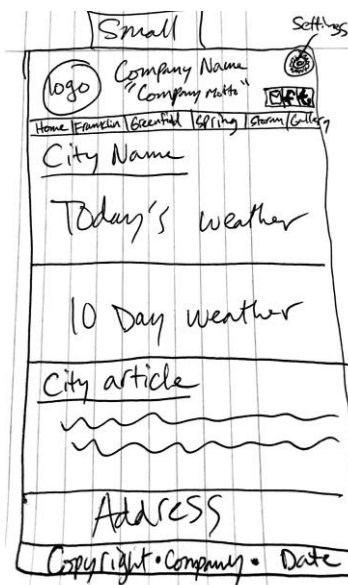 Small
Settings
logo
Company Name
"Company Motto"
Home | Franklin | Greenfield | Spring | Storm | Gallery
City Name
Today's weather
10 Day weather
City article
Address
Copyright • Company • Date